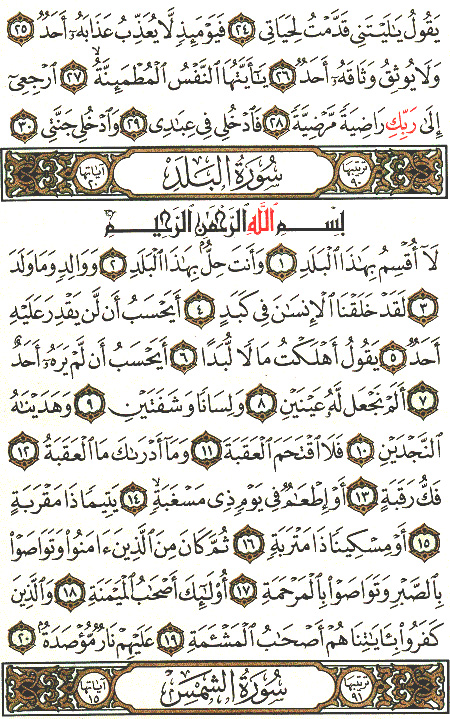 يَقُولُ يَـٰلَيْتَنِى قَدَّمْتُ لِحَيَاتِى ٢٤ فَيَوْمَئِذٍ لَّا يُعَذِّبُ عَذَابَهُۥٓ أَحَدٌ ٢٥
وَلَا يُوثِقُ وَثَاقَهُۥٓ أَحَدٌ ٢٦ يَـٰٓأَيَّتُهَا ٱلنَّفْسُ ٱلْمُطْمَئِنَّةُ ٢٧ ٱرْجِعِىٓ
إِلَىٰ رَبِّكِ رَاضِيَةً مَّرْضِيَّةً ٢٨ فَٱدْخُلِى فِى عِبَـٰدِى ٢٩ وَٱدْخُلِى جَنَّتِى ٣٠
ترتيبها ٩٠ سُورَةُ الْبَلَدِ آياتها ٢٠
بِسْمِ ٱللَّهِ ٱلرَّحْمَـٰنِ ٱلرَّحِيمِ
لَآ أُقْسِمُ بِهَـٰذَا ٱلْبَلَدِ ١ وَأَنتَ حِلٌّۢ بِهَـٰذَا ٱلْبَلَدِ ٢ وَوَالِدٍ وَمَا وَلَدَ
٣ لَقَدْ خَلَقْنَا ٱلْإِنسَـٰنَ فِى كَبَدٍ ٤ أَيَحْسَبُ أَن لَّن يَقْدِرَ عَلَيْهِ
أَحَدٌ ٥ يَقُولُ أَهْلَكْتُ مَالًا لُّبَدًا ٦ أَيَحْسَبُ أَن لَّمْ يَرَهُۥٓ أَحَدٌ
٧ أَلَمْ نَجْعَل لَّهُۥ عَيْنَيْنِ ٨ وَلِسَانًا وَشَفَتَيْنِ ٩ وَهَدَيْنَـٰهُ
ٱلنَّجْدَيْنِ ١٠ فَلَا ٱقْتَحَمَ ٱلْعَقَبَةَ ١١ وَمَآ أَدْرَىٰكَ مَا ٱلْعَقَبَةُ ١٢
فَكُّ رَقَبَةٍ ١٣ أَوْ إِطْعَـٰمٌ فِى يَوْمٍ ذِى مَسْغَبَةٍ ١٤ يَتِيمًا ذَا مَقْرَبَةٍ
١٥ أَوْ مِسْكِينًا ذَا مَتْرَبَةٍ ١٦ ثُمَّ كَانَ مِنَ ٱلَّذِينَ ءَامَنُوا۟ وَتَوَاصَوْا۟
بِٱلصَّبْرِ وَتَوَاصَوْا۟ بِٱلْمَرْحَمَةِ ١٧ أُو۟لَـٰٓئِكَ أَصْحَـٰبُ ٱلْمَيْمَنَةِ ١٨ وَٱلَّذِينَ
كَفَرُوا۟ بِـَٔايَـٰتِنَا هُمْ أَصْحَـٰبُ ٱلْمَشْـَٔمَةِ ١٩ عَلَيْهِمْ نَارٌ مُّؤْصَدَةٌۢ ٢٠
ترتيبها ٩١ سُورَةُ الشَّمْسِ آياتها ١٥